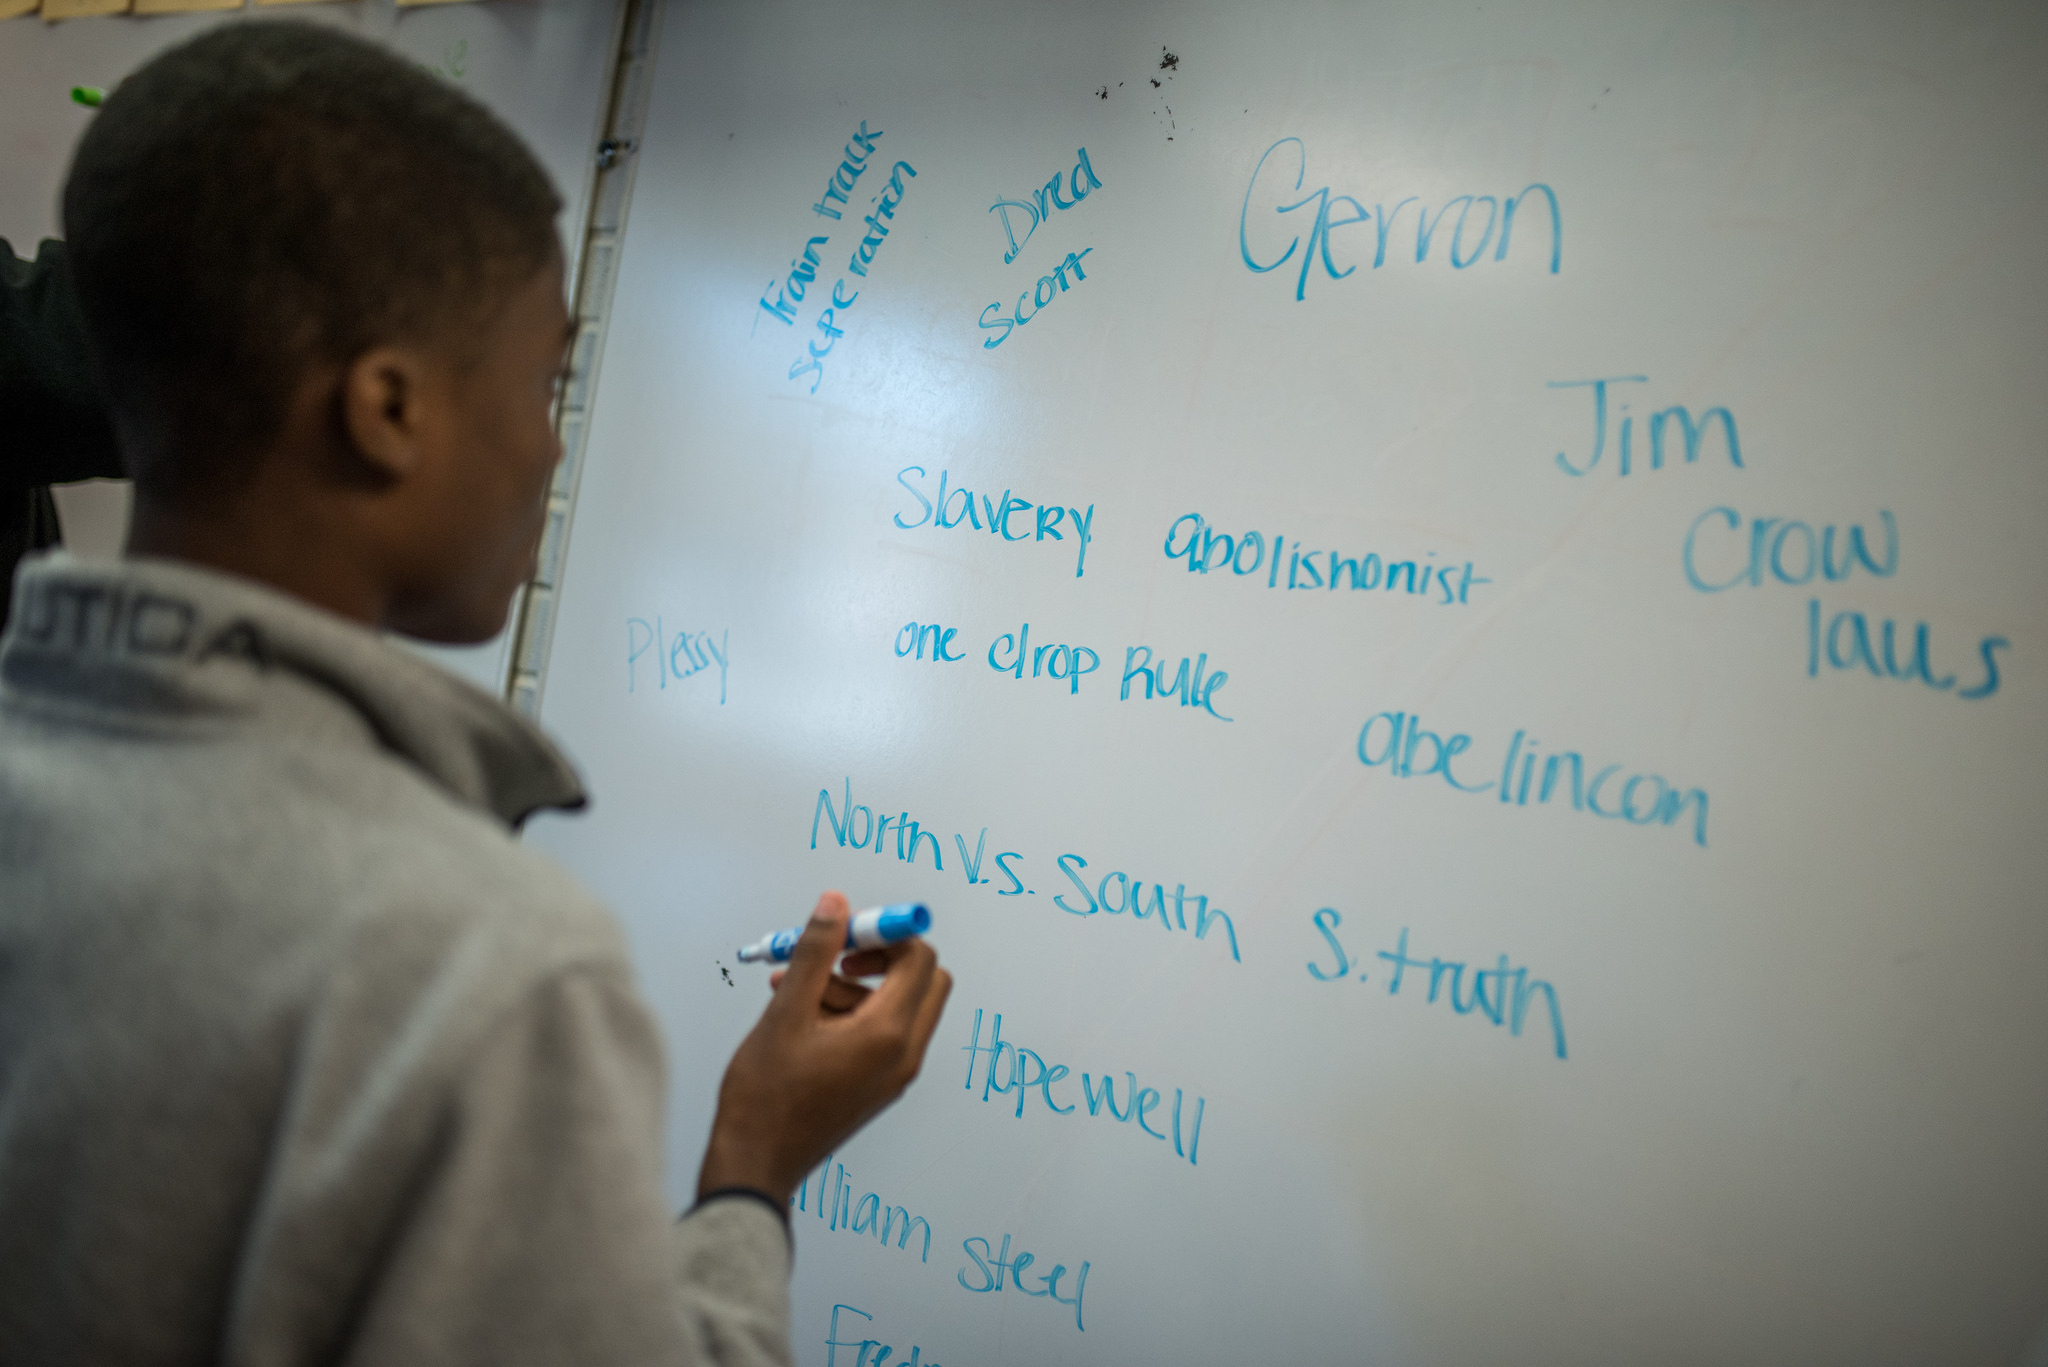 Train track
seperation
Dred
Scott
Gerron
Jim
Crow
laws
Slavery abolishonist
Plessy
one drop Rule
abe lincon
North V.S. South
S. truth
Hopewell
illiam Steel
UTICA